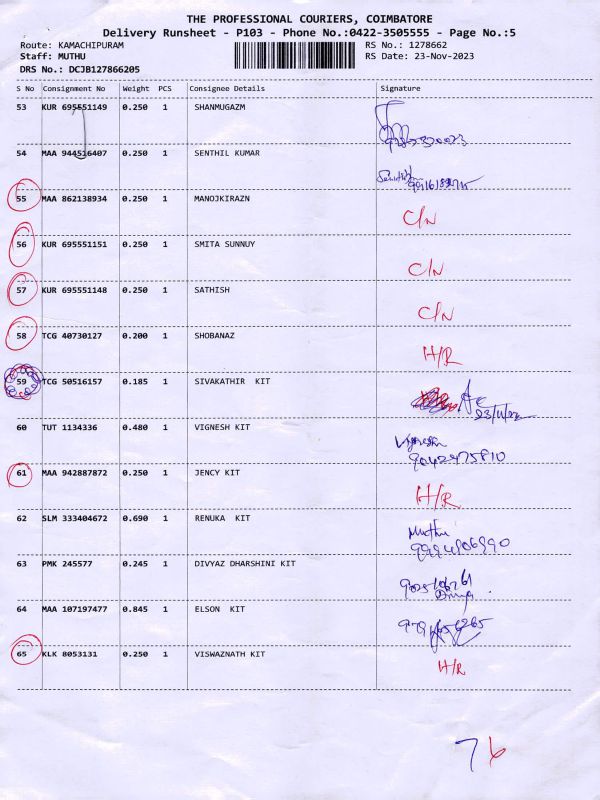 THE PROFESSIONAL COURIERS, COIMBATORE
Delivery Runsheet - P103 - Phone No.:0422-3505555 - Page No.:5
Route: KAMACHIPURAM RS No.: 1278662
Staff: MUTHU RS Date: 23-Nov-2023
DRS No.: DCJB127866205
S No Consignment No Weight PCS Consignee Details Signature
53 KUR 695551149 0.250 1 SHANMUGAZM
54 MAA 944516407 0.250 1 SENTHIL KUMAR
55 MAA 862138934 0.250 1 MANOJKIRAZN C/N
56 KUR 695551151 0.250 1 SMITA SUNNUY C/N
57 KUR 695551148 0.250 1 SATHISH C/N
58 TCG 40730127 0.200 1 SHOBANAZ H/R
59 TCG 50516157 0.185 1 SIVAKATHIR KIT
60 TUT 1134336 0.480 1 VIGNESH KIT
9042475810
61 MAA 942887872 0.250 1 JENCY KIT H/R
62 SLM 333404672 0.690 1 RENUKA KIT Muthu
9994906990
63 PMK 245577 0.245 1 DIVYAZ DHARSHINI KIT
64 MAA 107197477 0.845 1 ELSON KIT
65 KLK 8053131 0.250 1 VISWAZNATH KIT H/R